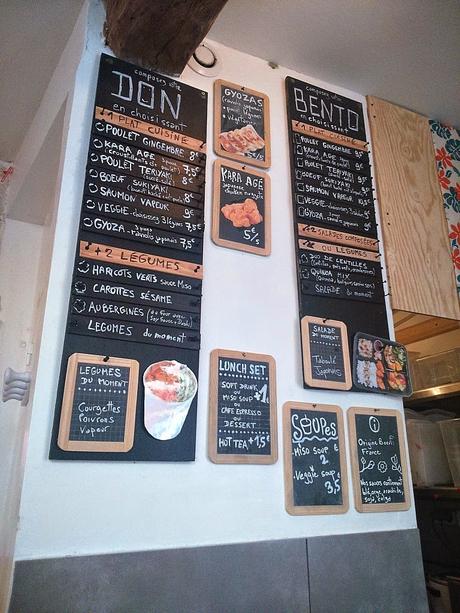 composez votre
DON
en choisissant
1 PLAT CUISINÉ
POULET GINGEMBRE 8€
KARA AGE
POULET TERIYAKI 8€
BOEUF SUKIYAKI
SAUMON VAPEUR 9€
VEGGIE
GYOZA raviolis japonais 7,5€
+2 LÉGUMES
HARICOTS VERTS sauce Miso
CAROTTES SÉSAME
AUBERGINES
LEGUMES du moment
LEGUMES
DU MOMENT
Courgettes
Poivrons
Vapeur
GYOZAS
raviolis japonais
KARA AGE
japanese chicken nuggets
5€/5
LUNCH SET
SOFT DRINK
OU
MISO SOUP
OU
CAFÉ EXPRESSO
OU
DESSERT
+1€
HOT TEA +1,5€
composez votre
BENTO
en choisissant
1 PLAT CUISINÉ
POULET GINGEMBRE
KARA AGE
POULET TERIYAKI
BOEUF SUKIYAKI
SAUMON VAPEUR
VEGGIE
GYOZA
+2 SALADES COMPOSÉES
OU LEGUMES
DUO DE LENTILLES
QUINOA MIX
SALADE du moment
SALADE
DU MOMENT
Taboulé
Japonais
SOUPES
MISO SOUP
2
-Veggie soup
3,5
Origine Boeuf:
France
Nos sauces contiennent